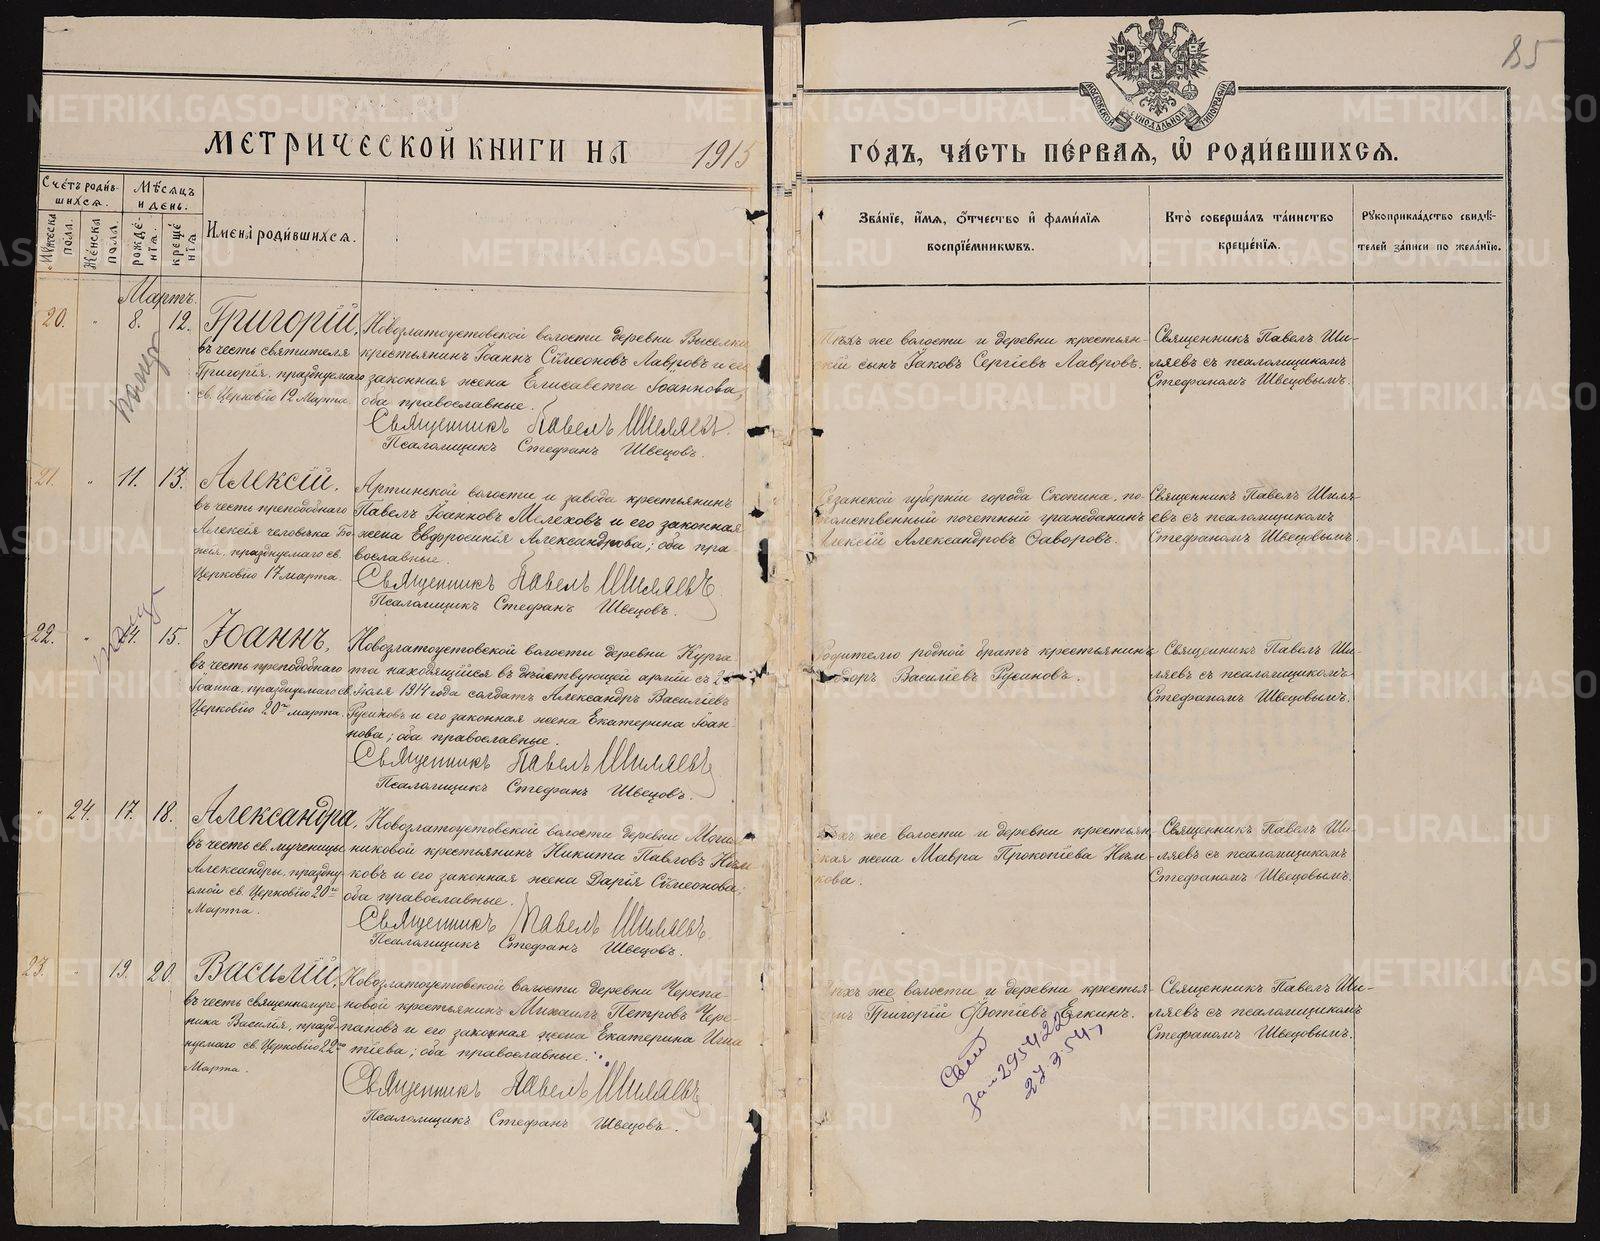 85
МОСКОВСКОЙ СѴНОДАЛЬНОЙ ТИПОГРАФІИ
МЕТРИЧЕСКОЙ КНИГИ НА 1915
ГО́ДЪ, ЧА́СТЬ ПЕ́РВАЯ, Ѽ РОДИ́ВШИХСЯ.
Сче́тъ роди́в-
шихся.
Мѣ́сяцъ
и день.
Мужеска
пола.
Женска
пола.
рожде́-
нія.
креще́
нія.
Имена́ роди́вшихся.
Зва́ніе, и́мя, о́тчество и́ фами́лія
воспріе́мниковъ.
Кто̀ соверша́лъ та́инство
креще́нія.
Рукоприкла́дство свидѣ́-
телей за́писи по жела́нію.
Мартъ.
20. " 8. 12. Григорій,
въ честь святителя
Григорія, празднуемаго
св. Церковію 12 Марта
Новозлатоустовской волости деревни Выселки
крестьянинъ Іоаннъ Сѵмеоновъ Лавровъ и его
законная жена Елисавета Іоаннова,
оба православные.
Священникъ Павелъ Шиляевъ.
Псаломщикъ Стефанъ Швецовъ.
же волости и деревни крестьян-
сынъ Іаковъ Сергіевъ Лавровъ.
Священникъ Павелъ Ши-
ляевъ съ псаломщикомъ
Стефаномъ Швецовымъ.
21. " 11. 13. Алексій,
въ честь преподобнаго
Алексія человѣка Бо-
жія, празднуемаго св.
Церковію 17 марта.
Артинской волости и завода крестьянинъ
Павелъ Іоанновъ Мелеховъ и его законная
жена Евфросинія Александрова; оба пра
вославные.
Священникъ Павелъ Шиляевъ
Псаломщикъ Стефанъ Швецовъ.
Рязанской губерніи города Скопина, по-
томственный почетный гражданинъ
Алексій Александровъ Саворовъ.
Священникъ Павелъ Шиля
евъ съ псаломщикомъ
Стефаномъ Швецовымъ.
22. " 14. 15. Іоаннъ,
въ честь преподобнаго
Іоанна, празднуемаго св.
Церковію 20го марта.
Новозлатоустовской волости деревни Курга
та находящійся въ дѣйствующей арміи съ
Іюля 1914 года солдатъ Александръ Василіевъ
Русиновъ и его законная жена Екатерина Іоан-
нова; оба православные.
Священникъ Павелъ Шиляевъ
Псаломщикъ Стефанъ Швецовъ.
Родителю родной братъ крестьянинъ
Василіевъ Русиновъ.
Священникъ Павелъ Ши-
ляевъ съ псаломщикомъ
Стефаномъ Швецовымъ.
" 24. 17. 18. Александра,
въ честь св. мученицы
Александры, праздну-
емой св. Церковію 20го
Марта.
Новозлатоустовской волости деревни Моги
никовой крестьянинъ Никита Павловъ
ковъ и его законная жена Дарія Сѵмеонова;
оба православные.
Священникъ Павелъ Шиляевъ
Псаломщикъ Стефанъ Швецовъ.
же волости и деревни крестьян
ская жена Мавра Прокопіева
кова.
Священникъ Павелъ Ши-
ляевъ съ псаломщикомъ
Стефаномъ Швецовымъ.
23. " 19. 20. Василій,
въ честь священномуче-
ника Василія, празд-
нуемаго св. Церковію 22го
Марта.
Новозлатоустовской волости деревни Черепа-
новой крестьянинъ Михаилъ Петровъ Чере-
пановъ и его законная жена Екатерина Игна
тіева; оба православные.
Священникъ Павелъ Шиляевъ
Псаломщикъ Стефанъ Швецовъ.
же волости и деревни крестья-
Григорій Фотіевъ Елкинъ.
Священникъ Павелъ Ши-
ляевъ съ псаломщикомъ
Стефаномъ Швецовымъ.
METRIKI.GASO-URAL.RU